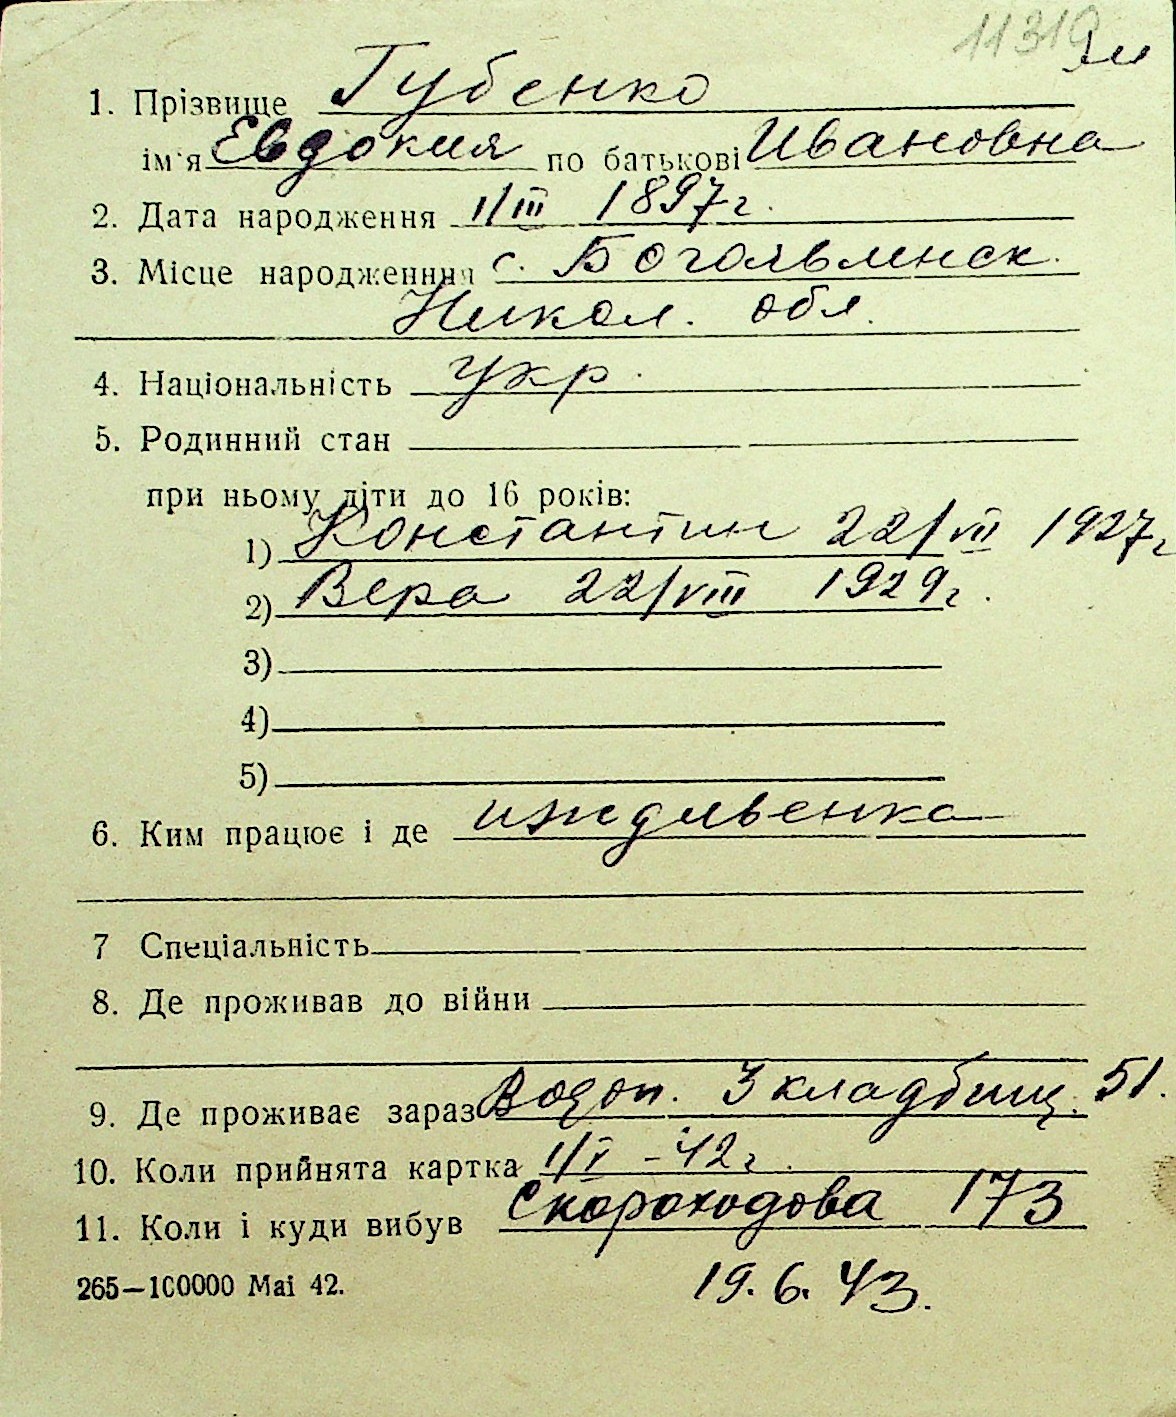 11319
1. Прізвище Губенко
ім'я Евдокия по батькові Ивановна
2. Дата народження 1/III 1897г.
3. Місце народженння с. Богоявленск.
Никол. обл.
4. Національність укр.
5. Родинний стан
при ньому діти до 16 років:
1) Константин 22/VII 1927г
2) Вера 22/VIII 1929г.
3)
4)
5)
6. Ким працює і де иждивенка
7 Спеціальність
8. Де проживав до війни
9. Де проживає зараз Водоп. 3 кладбищ. 51.
10. Коли прийнята картка 1/V - 42г.
11. Коли і куди вибув Скороходова 173
265—100000 Маі 42. 19.6.43.